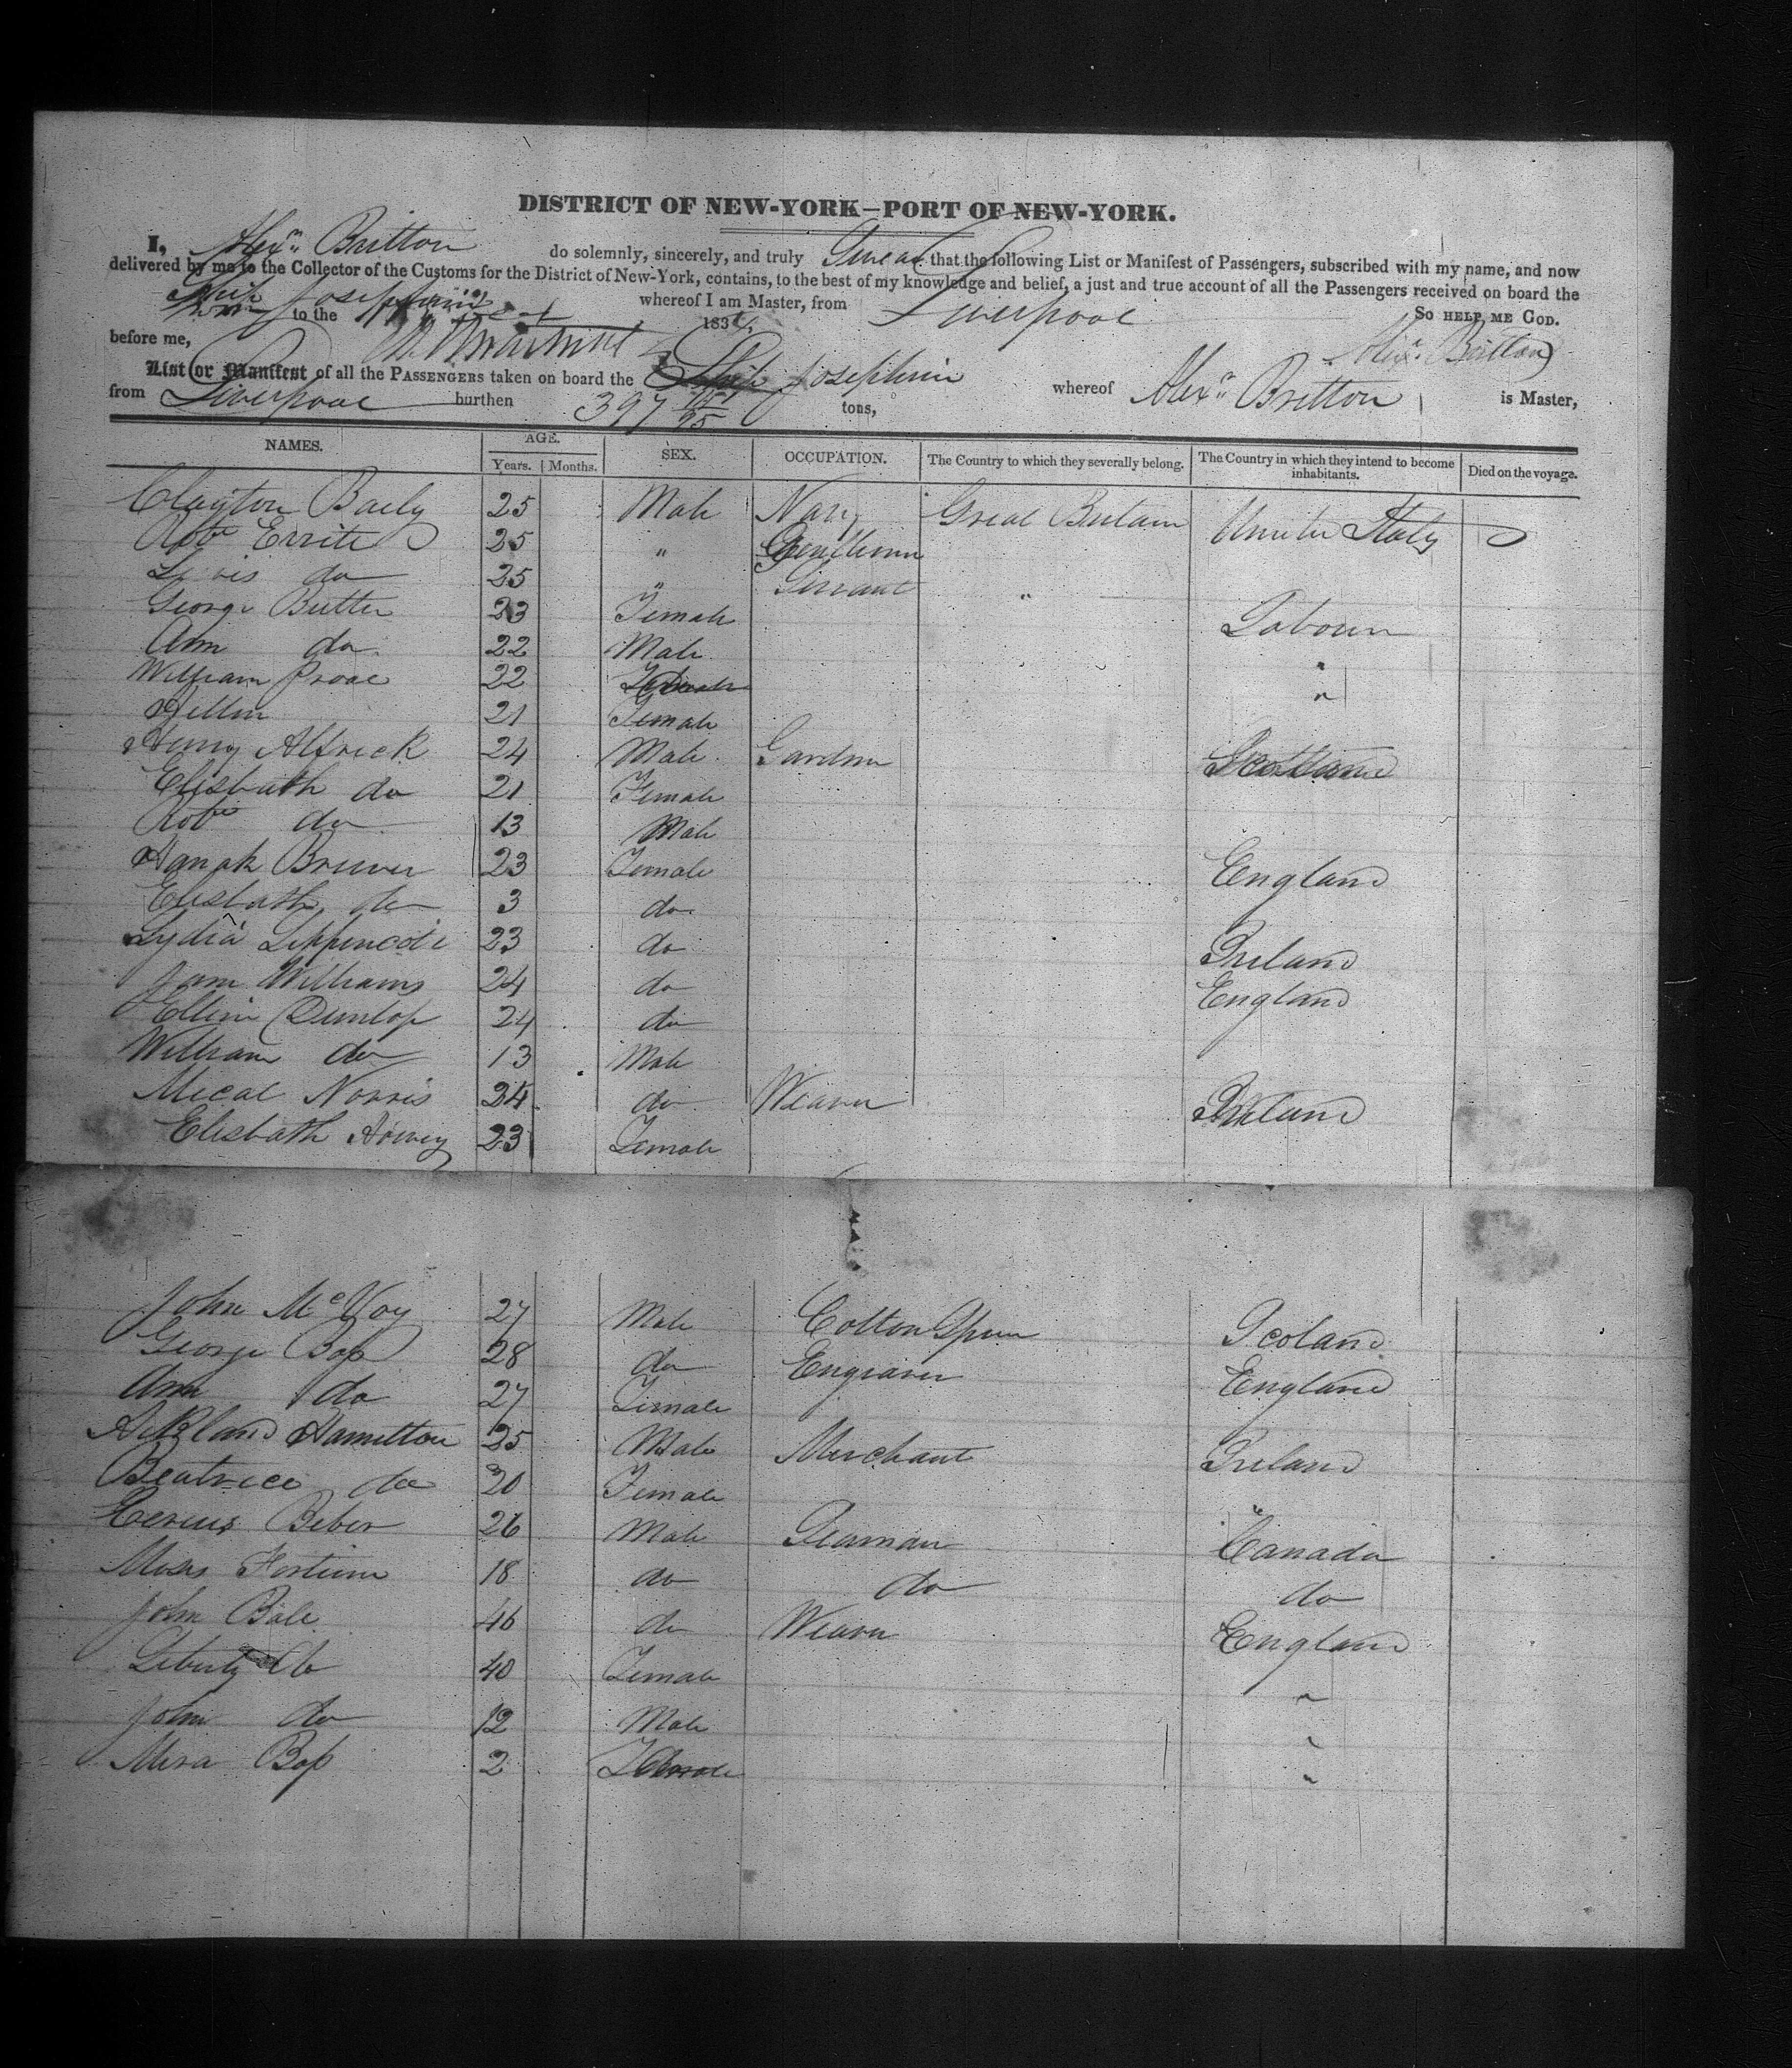 DISTRICT OF NEW-YORK—PORT OF NEW-YORK.
I, Alexr Britton do solemnly, sincerely, and truly Swear that the following List or Manifest of Passengers, subscribed with my name, and now
delivered by me to the Collector of the Customs for the District of New-York, contains, to the best of my knowledge and belief, a just and true account of all the Passengers received on board the
Ship Josephine whereof I am Master, from Liverpool So HELP ME GOD.
to the 183
before me, Alexr Britton
List or Manifest of all the PASSENGERS taken on board the Ship Josephine whereof Alexr Britton is Master,
from Liverpool burthen 397 tons,
NAMES. AGE. SEX. OCCUPATION. The Country to which they severally belong. The Country in which they intend to become inhabitants. Died on the voyage.
Years. Months.
Clayton Baily 25 Male Navy Great Britain United States
Robt Errite 25 " Gentlemen
Lewis do 25 " Servant "
George Butter 23 Female Labourer
Ann do 22 Male "
William Proae 22 "
Hellen 21 Female
Henry Alfrick 24 Male Gardner Scotland
Elisbath do 21 Female
Robt do 13 Male
Hanah Brewer 23 Female England
Elisbath do 3 do
Lydia Lippencote 23 do Ireland
Jane Williams 24 do England
Ellin Dunlop 24 do
William do 13 Male
Mical Norris 34 do Weaver Ireland
Elisbath 23 Female
John McVoy 27 Male Cotton Spiner Scoland
George Bop 28 do Engraver England
Ann do 27 Female
Ackland Hamilton 25 Male Merchant Ireland
Beatrice do 20 Female "
Bebor 26 Male Seaman Canada
Moses Fortune 18 do do do
John Bale 46 do Weaver England
Liberty do 40 Female "
John do 12 Male "
Mira Bop 2 Female "